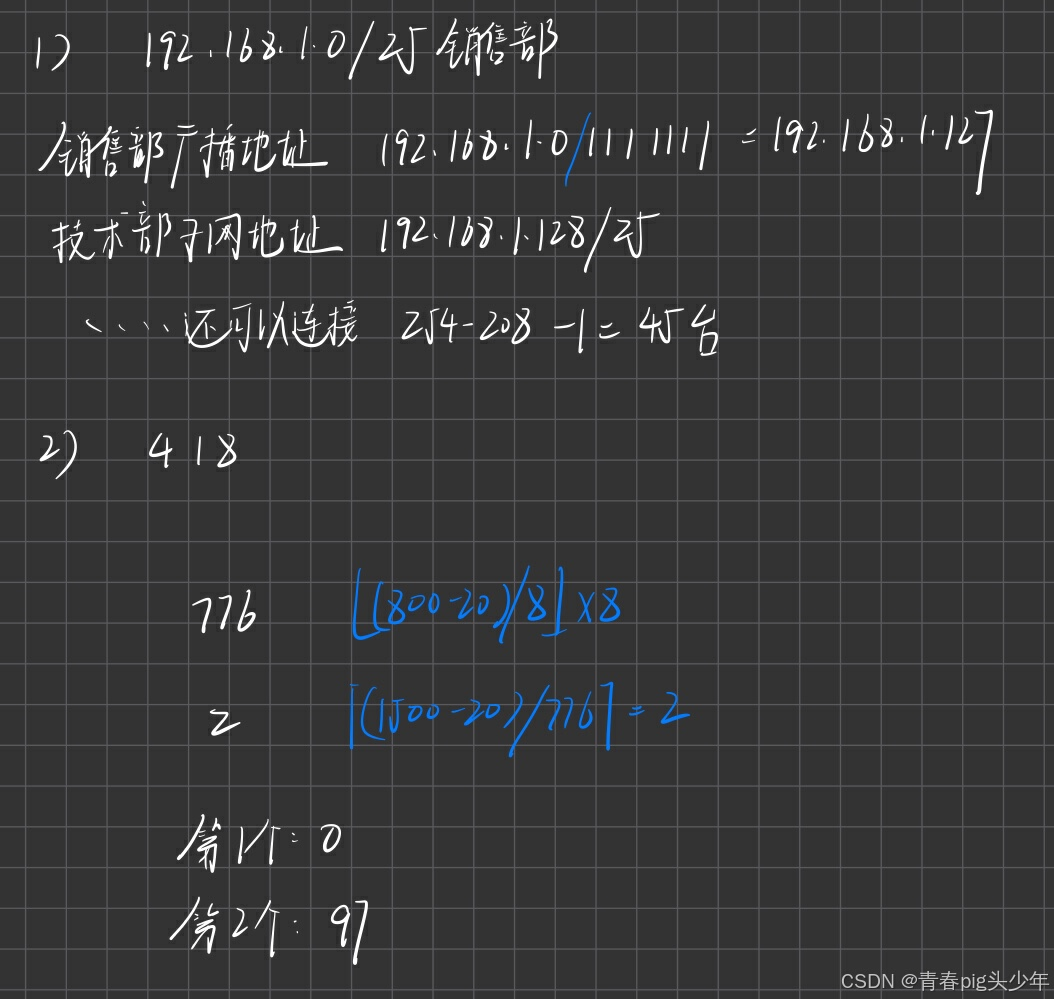 1) 192.168.1.0/25 销售部
销售部广播地址 192.168.1.0/1111111 = 192.168.1.127
技术部子网地址 192.168.1.128/25
、····还可以连接 254-208-1=45台
2) 418
776 ⌊(800-20)/8⌋×8
2 ⌈(1500-20)/776⌉=2
第1个: 0
第2个: 97
CSDN @青春pig头少年